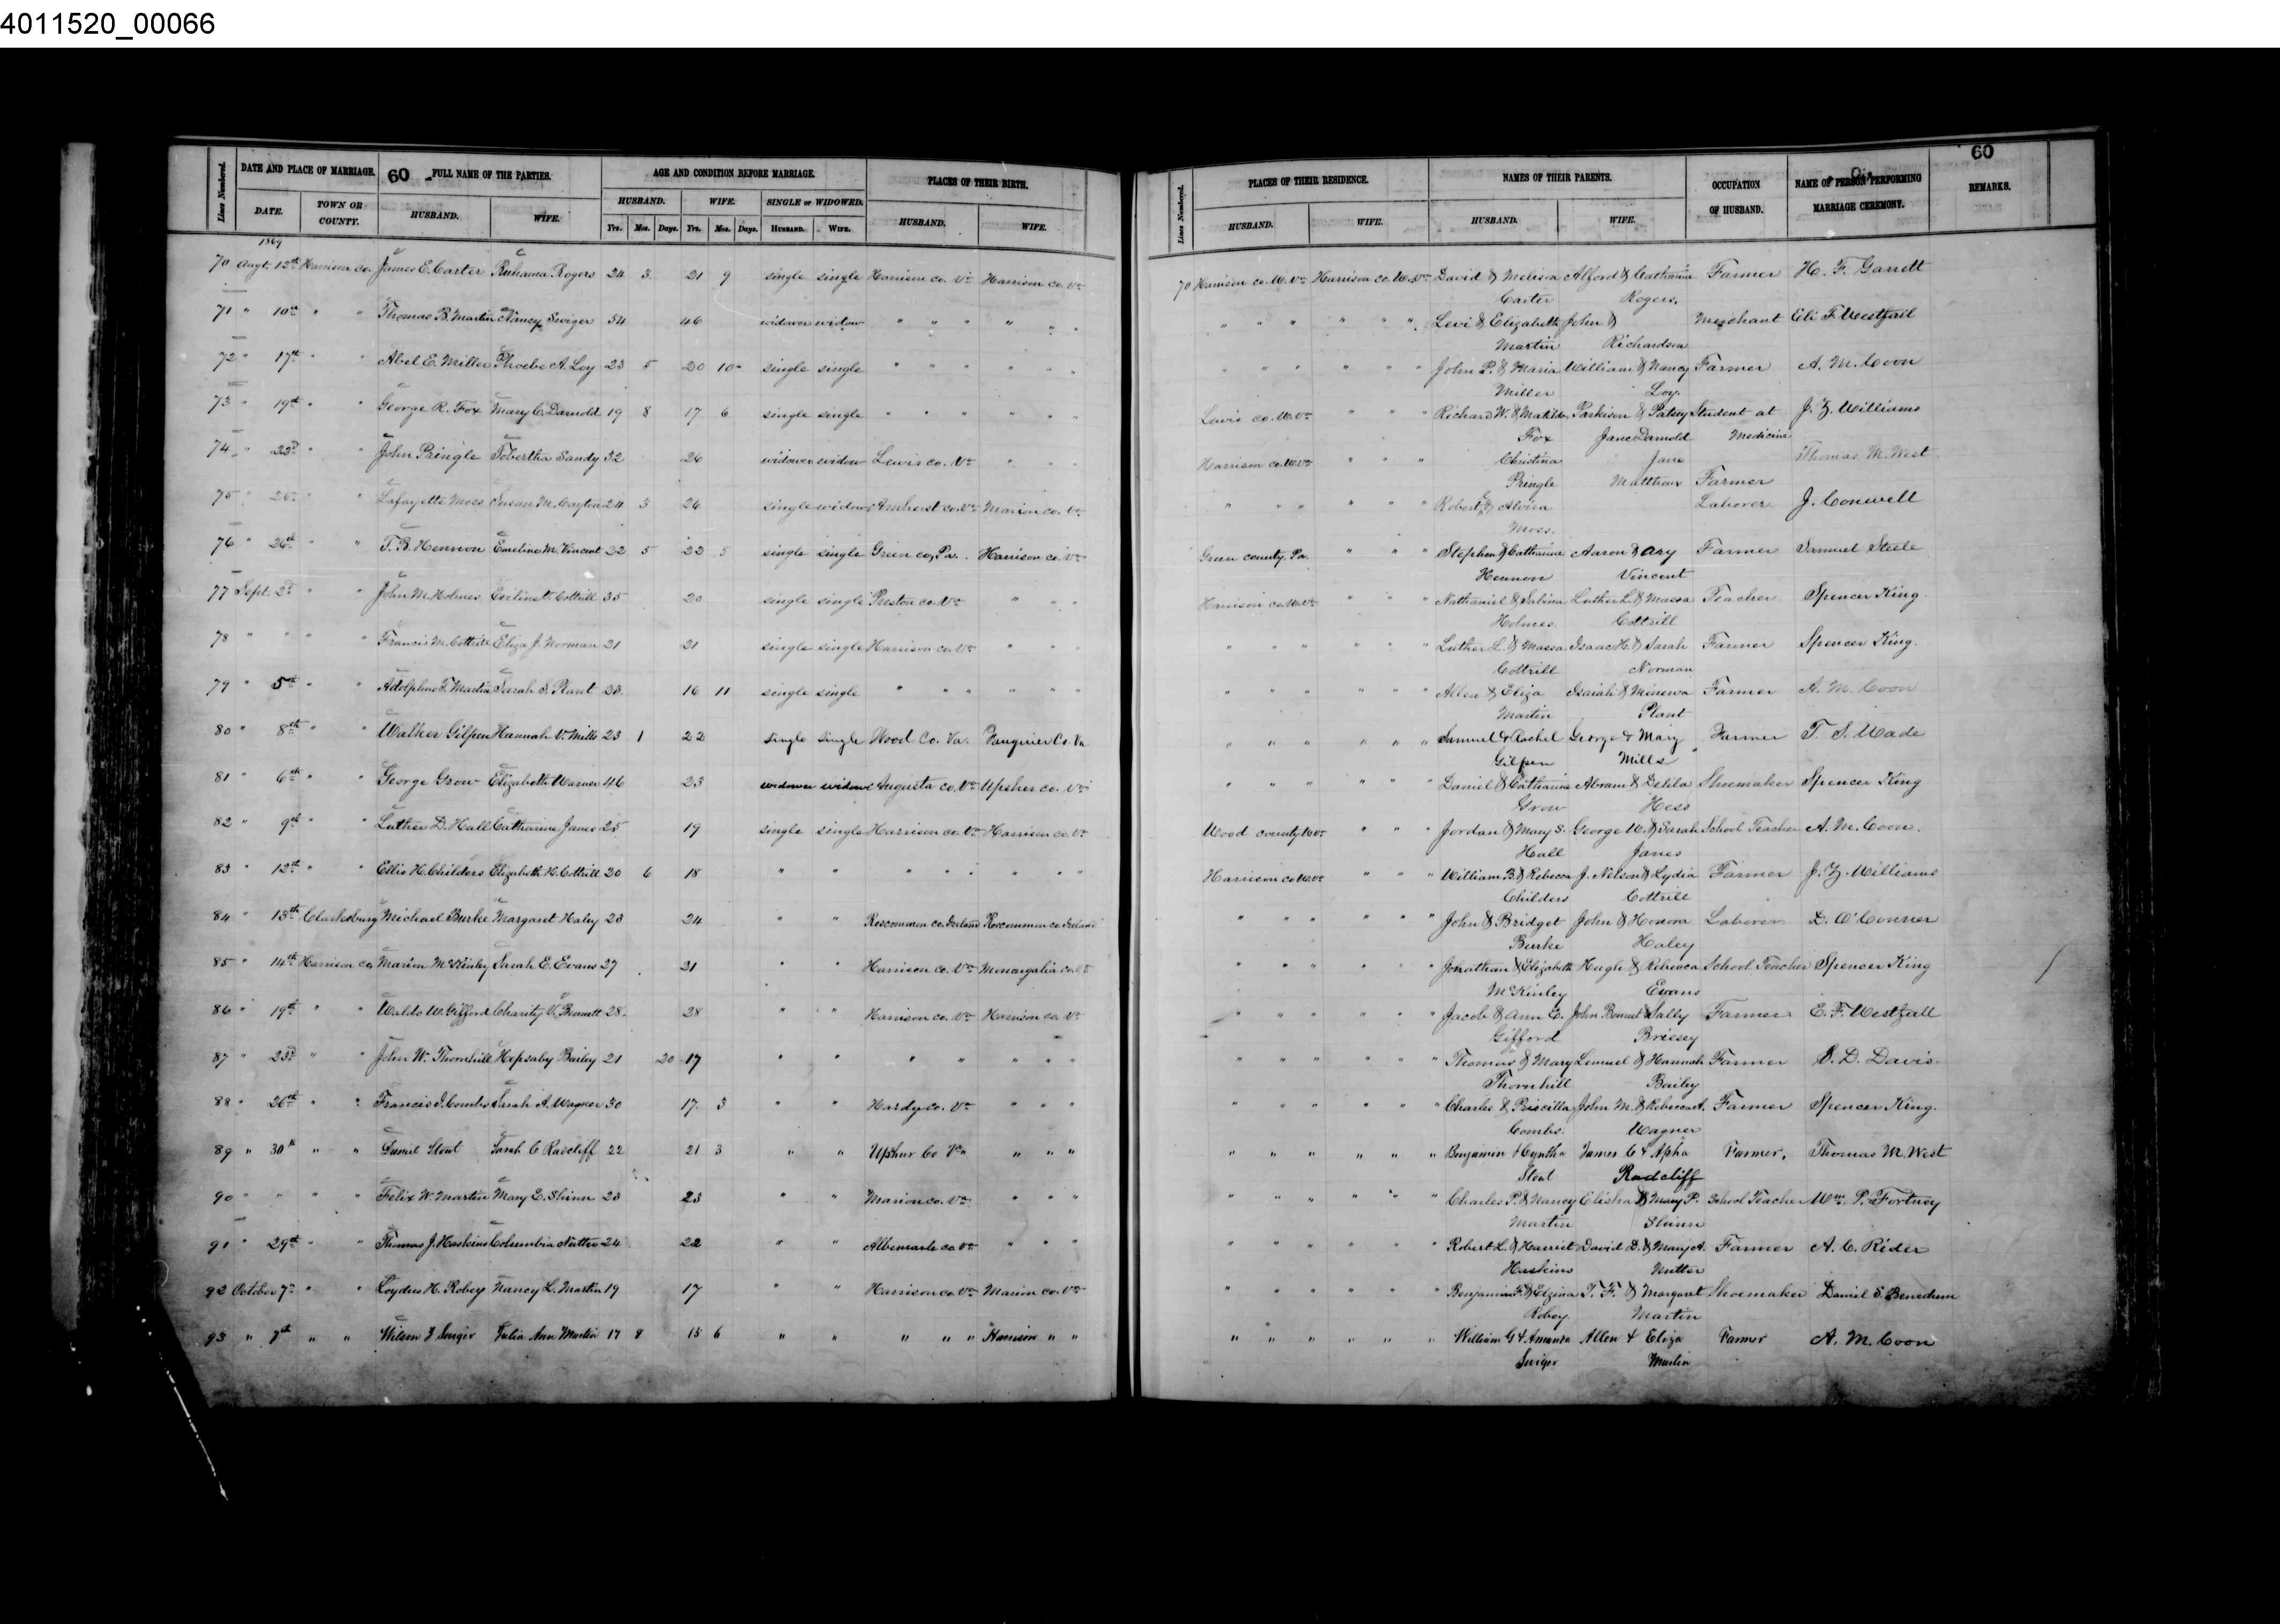 4011520_00066
60
60
Lines Numbered. DATE AND PLACE OF MARRIAGE. FULL NAME OF THE PARTIES. AGE AND CONDITION BEFORE MARRIAGE. PLACES OF THEIR BIRTH. Lines Numbered. PLACES OF THEIR RESIDENCE. NAMES OF THEIR PARENTS. OCCUPATION OF HUSBAND. NAME OF PERSON PERFORMING MARRIAGE CEREMONY. REMARKS.
HUSBAND. WIFE. SINGLE or WIDOWED.
DATE. TOWN OR COUNTY. HUSBAND. WIFE. Yrs. Mos. Days. Yrs. Mos. Days. HUSBAND. WIFE. HUSBAND. WIFE. HUSBAND. WIFE. HUSBAND. WIFE.
1869
70 Augt. 12th Harrison co. James E. Carter Ruhama Rogers 24 3 21 9 single single Harrison co. Va Harrison co. Va 70 Harrison co. W. Va Harrison co. W. Va David & Melissa Alford & Catharine Farmer H. F. Garrett
Carter Rogers
71 " 10th " " Thomas B. Martin Nancy Swiger 54 46 widower widow " " " " " " " " " " " " Levi & Elizabeth John & Merchant Eli F. Westfall
Martin Richardson
72 " 17th " " Abel E. Miller Phoebe A. Loy 23 5 20 10 single single " " " " " " " " " " " " John P. & Maria William & Nancy Farmer A. M. Coon
Miller Loy
73 " 19th " " George R. Fox Mary C. Darnold 19 8 17 6 single single " " " " " " Lewis co. W. Va " " " Richard W. & Matilda Parkison & Patsey Student at J. Z. Williams
Fox Jane Darnold Medicine
74 " 23d " John Pringle Tobertha Sandy 32 26 widower widow Lewis co. Va " " " Harrison co. W. Va " " " Christina Jane Thomas M. West
Pringle Matthews Farmer
75 " 26 " " Lafayette Moss Susan M. Cayton 24 3 26 single widow Amherst co. Va Marion co. Va " " " " " " Robert & Alvira Laborer J. Conwell
Moss
76 " 26th " " T. B. Hennon Emeline M. Vincent 22 5 22 5 single single Green co, Pa. Harrison co. Va Green county, Pa. " " " Stephen & Catharine Aaron & Ary Farmer Samuel Steele
Hennon Vincent
77 Sept. 2d " " John M. Holmes Eveline V. Cottrill 35 20 single single Preston co. Va " " " Harrison co. W. Va " " " Nathaniel & Sabina Luther L. & Massa Teacher Spencer King
Holmes Cottrill
78 " " " " Francis M. Cottrill Eliza J. Norman 21 21 single single Harrison co. Va " " " " " " " " " Luther L. & Massa Isaac H. & Sarah Farmer Spencer King.
Cottrill Norman
79 " 5th " " Adolphus F. Martin Sarah S. Plant 23 16 11 single single " " " " " " " " " " " " Allen & Eliza Isaiah & Minerva Farmer A. M. Coon
Martin Plant
80 " 8th " " Walker Gilpen Hannah V. Mills 23 1 22 single single Wood Co. Va. Fauquier Co. Va " " " " " " Samuel & Rachel George & Mary Farmer T. S. Wade
Gilpen Mills
81 " 6th " " George Grow Elizabeth Warner 46 23 widower widow Augusta co. Va Upsher co. Va " " " " " " Daniel & Catharine Abram & Delila Shoemaker Spencer King
Grow Hess
82 " 9th " " Luther D. Hall Catharine Janes 25 19 single single Harrison co. Va Harrison co. Va Wood county W. Va " " " Jordan & Mary S. George W. & Sarah School Teacher A. M. Coon.
Hall Janes
83 " 12th " " Ellis H. Childers Elizabeth H. Cottrill 20 6 18 " " " " " " " " Harrison co W. Va " " " William B. & Rebecca J. Nelson & Lydia Farmer J. Z. Williams
Childers Cottrill
84 " 13th Clarksburg Michael Burke Margaret Haley 23 24 " " Roscommon co. Ireland Roscommon co. Ireland " " " " " " John & Bridget John & Honora Laborer D. O'Conner
Burke Haley
85 " 14th Harrison co, Marion McKinley Sarah E. Evans 27 21 " " Harrison co. Va Monongalia co. Va " " " " " Johathan & Elizabeth Hugh & Rebecca School Teacher Spencer King
McKinley Evans
86 " 19th " " Waldo W. Gifford Charity V. Bennett 28 28 " " Harrison co. Va Harrison co. Va " " " " " " Jacob & Ann E. John Bennet & Sally Farmer E. F. Westfall
Gifford Briesey
87 " 23d " " John W. Thornhill Hepsaby Bailey 21 20 17 " " " " " " " " " " " " " Thomas & Mary Lemuel & Hannah Farmer S. D. Davis
Thornhill Bailey
88 " 26th " " Francis I. Combs Sarah A. Wagner 30 17 3 " " Hardy co. Va " " " " " " " " " Charles & Priscilla John M. & Rebecca A. Farmer Spencer King.
Combs. Wagner
89 " 30th " " Daniel Stout Sarah C Radcliff 22 21 3 " " Upshur Co Va " " " " " " " " " Benjamin & Cyntha James C & Apha Farmer, Thomas M. West
Stout Radcliff
90 " " " " Felix W. Martin Mary E. Shinn 23 23 " " Marion co. Va " " " " " " " " " Charles P. & Nancy Elisha & Mary P. School Teacher Wm. P. Fortney
Martin Shinn
91 " 29th " " Thomas J. Haskins Columbia Nutter 24 22 " " Albemarle co Va " " " " " " " " " Robert L. & Harriet David D. & Mary A. Farmer A. C. Rider
Haskins Nutter
92 October 7th " " Loydus H. Robey Nancy L. Martin 19 17 " " Harrison co. Va Marion co. Va " " " " " " Benjamin F. & Elzina T. F. & Margaret Shoemaker Daniel S. Benedum
Robey Martin
93 " 7th " " Wilson J Swiger Julia Ann Martin 17 8 15 6 " " " " " Harrison " " " " " " " " William G & Amanda Allen & Eliza Farmer A. M. Coon
Swiger Martin